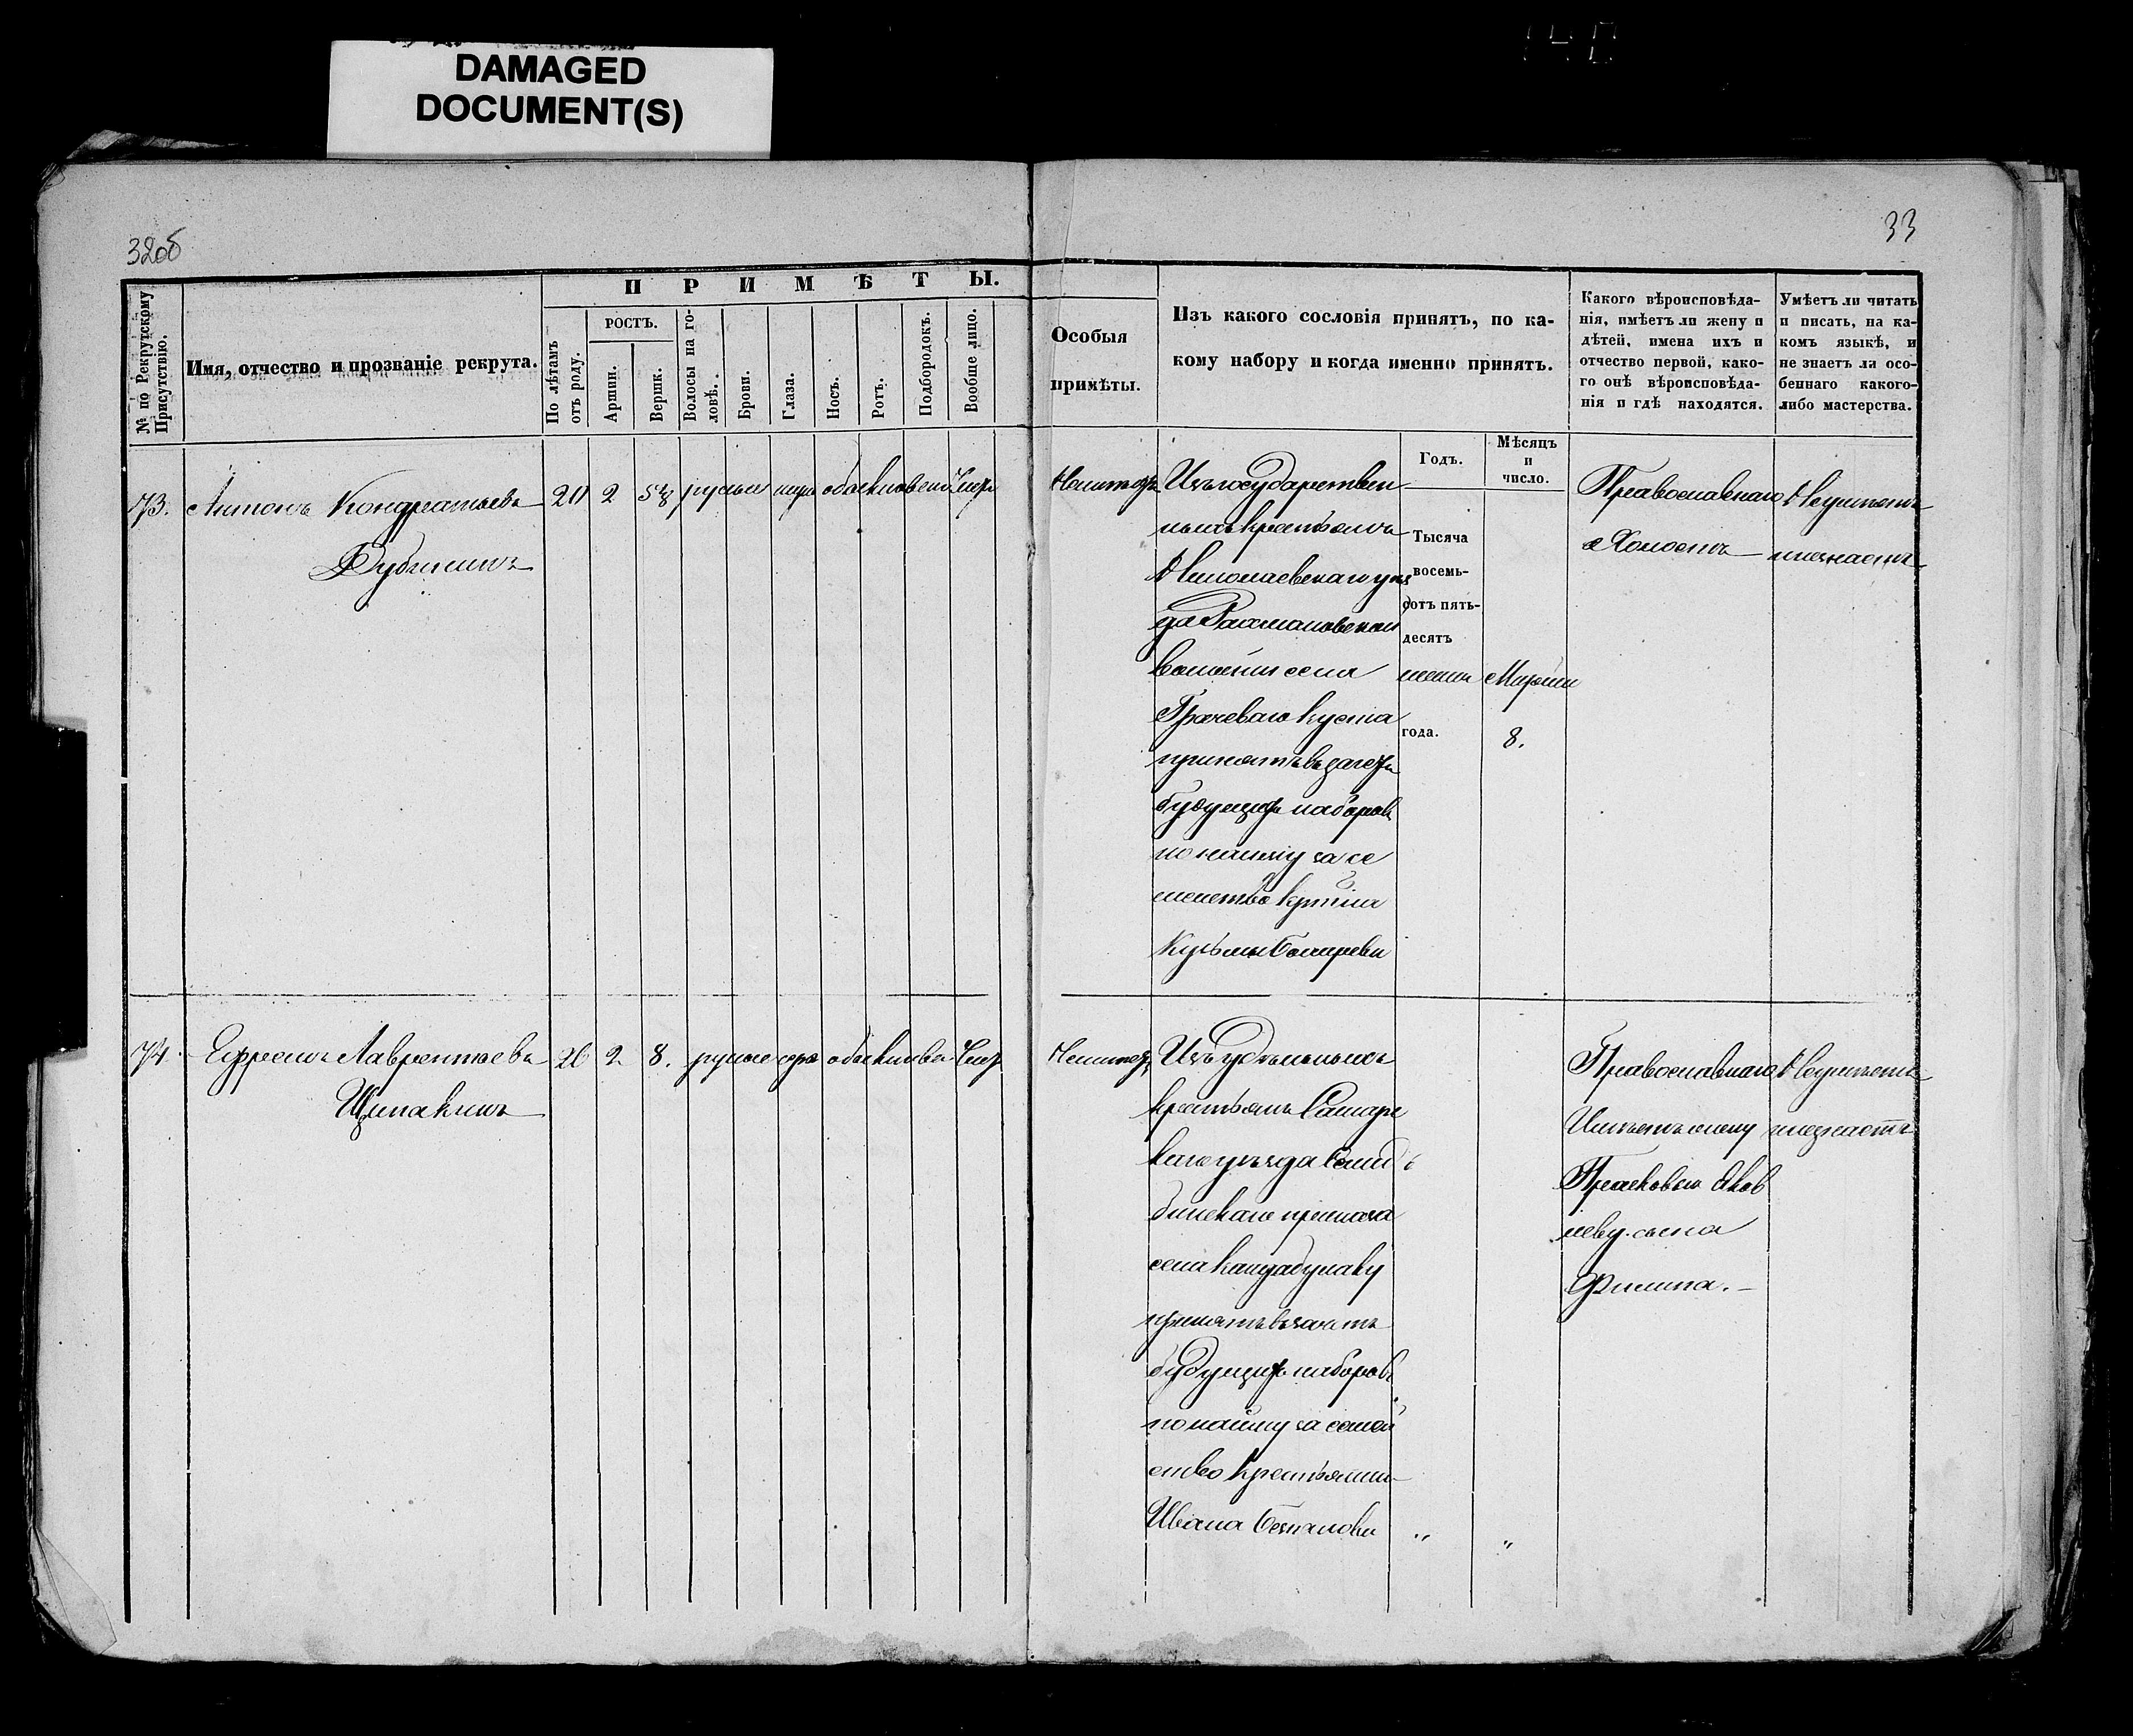 DAMAGED
DOCUMENT(S)
32об
33
№ по Рекрутскому Присутствію.
Имя, отчество и прозваніе рекрута.
ПРИМѢТЫ.
По лѣтамъ отъ роду.
РОСТЪ.
Аршин.
Вершк.
Волосы на головѣ.
Брови.
Глаза.
Носъ.
Ротъ.
Подбородокъ.
Вообще лицо.
Особыя
примѣты.
Изъ какого сословія принятъ, по ка-
кому набору и когда именно принятъ.
Какого вѣроисповѣда-
нія, имѣетъ ли жену и
дѣтей, имена ихъ и
отчество первой, како-
го онѣ вѣроисповѣда-
нія и гдѣ находятся.
Умѣетъ ли читать
и писать, на ка-
комъ языкѣ, и
не знаетъ ли осо-
беннаго какого-
либо мастерства.
Годъ.
Мѣсяцъ
и
число.
73. Антонъ Кондратьевъ
20 2 русые
Изъ государствен
ныхъ крестьянъ
Николаевскаго уѣз
да
волости села
Грачеваго куста
принятъ въ зачетъ
будущихъ наборовъ
по найму за се
мейство
Кузьмы
Тысяча
восемь-
сотъ пять-
десятъ
года.
Марта
8.
Православнаго
Холостъ
Неумѣетъ
инезнаетъ
74. Ефремъ Лаврентьевъ
Щипакинъ
26 2 8. русые
Изъ удѣльныхъ
крестьянъ Самарс
каго уѣзда
бинскаго приказа
села
принятъ въ зачетъ
будущихъ наборовъ
по найму за семей
ство крестьянина
Ивана
„ „
Православнаго
Имѣетъ жену
Прасковью Яков
леву. сына
Филипа.
Неумѣетъ
инезнаетъ